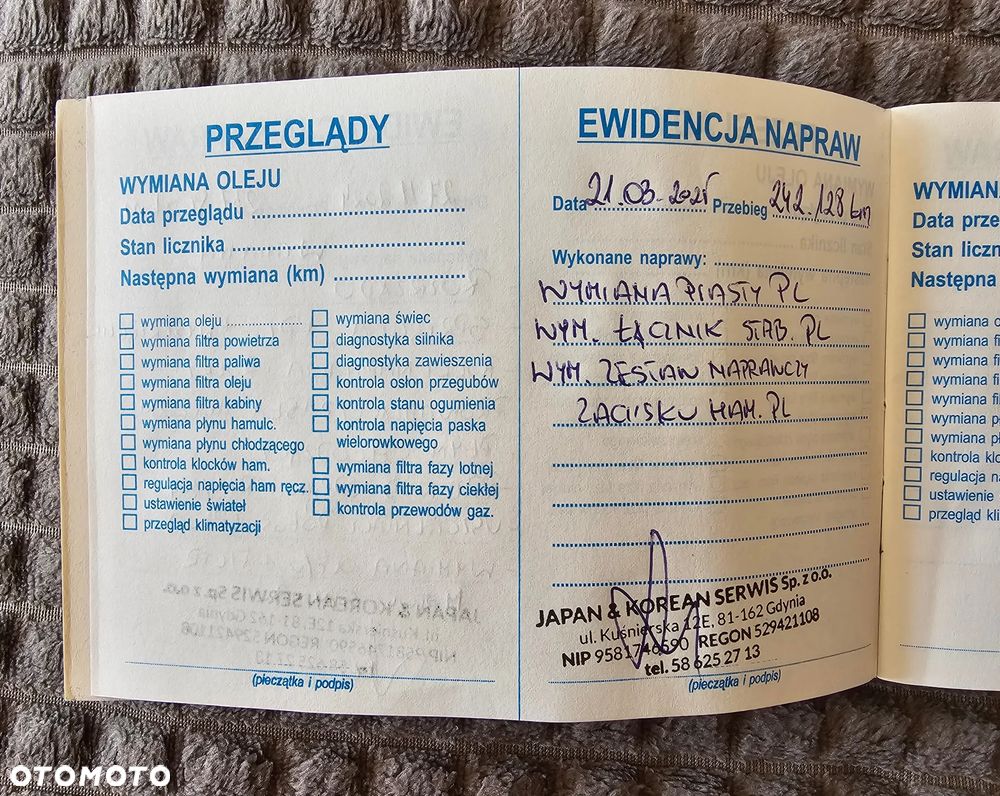 PRZEGLĄDY
WYMIANA OLEJU
Data przeglądu
Stan licznika
Następna wymiana (km)
wymiana oleju
wymiana filtra powietrza
wymiana filtra paliwa
wymiana filtra oleju
wymiana filtra kabiny
wymiana płynu hamulc.
wymiana płynu chłodzącego
kontrola klocków ham.
regulacja napięcia ham ręcz.
ustawienie świateł
przegląd klimatyzacji
wymiana świec
diagnostyka silnika
diagnostyka zawieszenia
kontrola osłon przegubów
kontrola stanu ogumienia
kontrola napięcia paska
wielorowkowego
wymiana filtra fazy lotnej
wymiana filtra fazy ciekłej
kontrola przewodów gaz.
(pieczątka i podpis)
EWIDENCJA NAPRAW
Data 21.03.2025 Przebieg 242.128 km
Wykonane naprawy:
WYMIANA PIASTY PL
WYM. ŁĄCZNIK STAB. PL
WYM. ZESTAW NAPRAWCZY
ZACISKU HAM. PL
JAPAN & KOREAN SERWIS Sp. z o.o.
ul. Kuśnierska 12E, 81-162 Gdynia
NIP 9581746590 REGON 529421108
tel. 58 625 27 13
(pieczątka i podpis)
WYMIAN
Data prze
Stan liczn
Następna
wymiana o
wymiana fi
wymiana fi
wymiana fi
wymiana fi
wymiana pł
wymiana pł
kontrola klo
regulacja na
ustawienie
przegląd kli
OTOMOTO